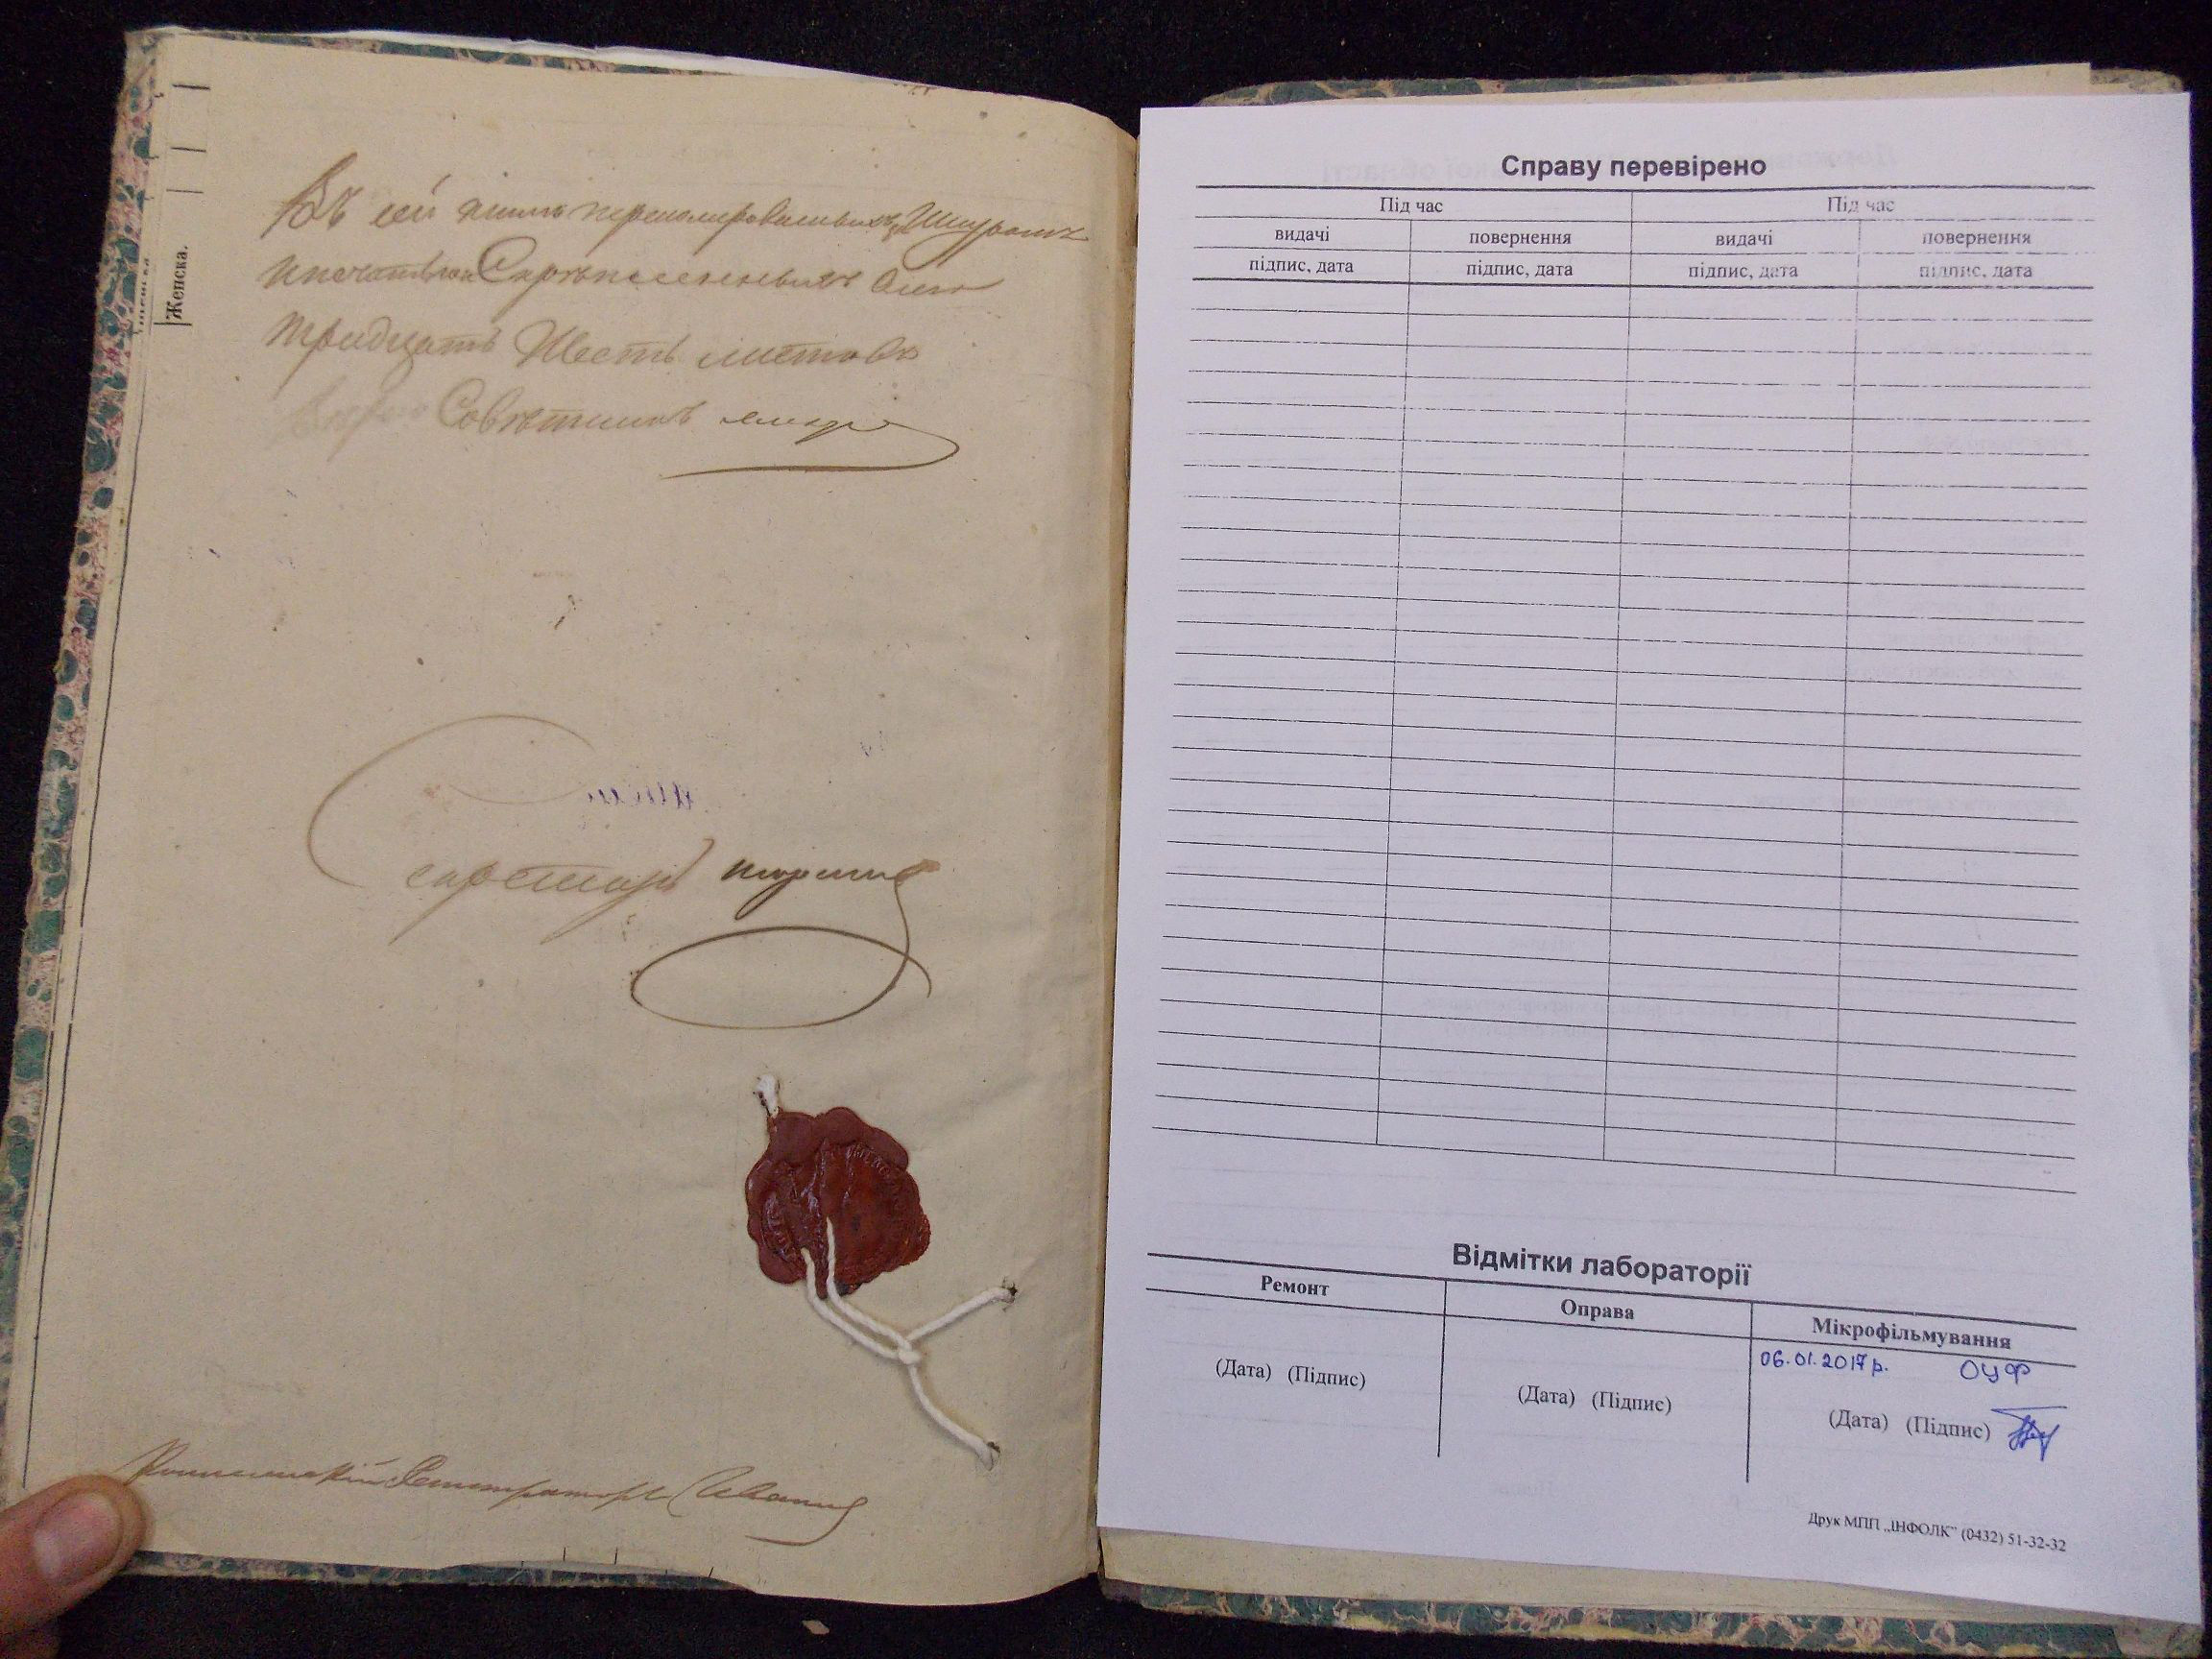 Женска.
Въ сей книгѣ перенумерованныхъ, Шнуромъ
и печатью Скрѣпленныхъ сто
тридцать Шесть листовъ
Совѣтникъ
секретарь
Регистраторъ
Справу перевірено
Під час Під час
видачі повернення видачі повернення
підпис, дата підпис, дата підпис, дата підпис, дата
Відмітки лабораторії
Ремонт Оправа Мікрофільмування
06.01.2017 р. ОЦФ
(Дата) (Підпис) (Дата) (Підпис) (Дата) (Підпис)
Друк МПП „ІНФОЛК” (0432) 51-32-32